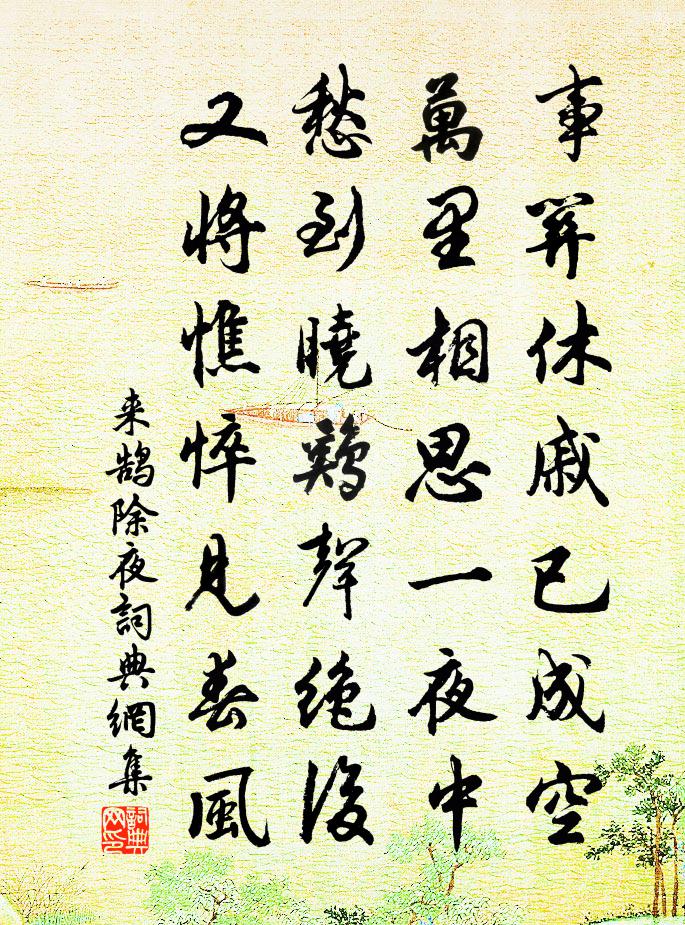 事關休戚已成空
萬里相思一夜中
愁到曉鷄聲絶後
又將憔悴見春風
来鵠除夜詞典網集
詞典
网印